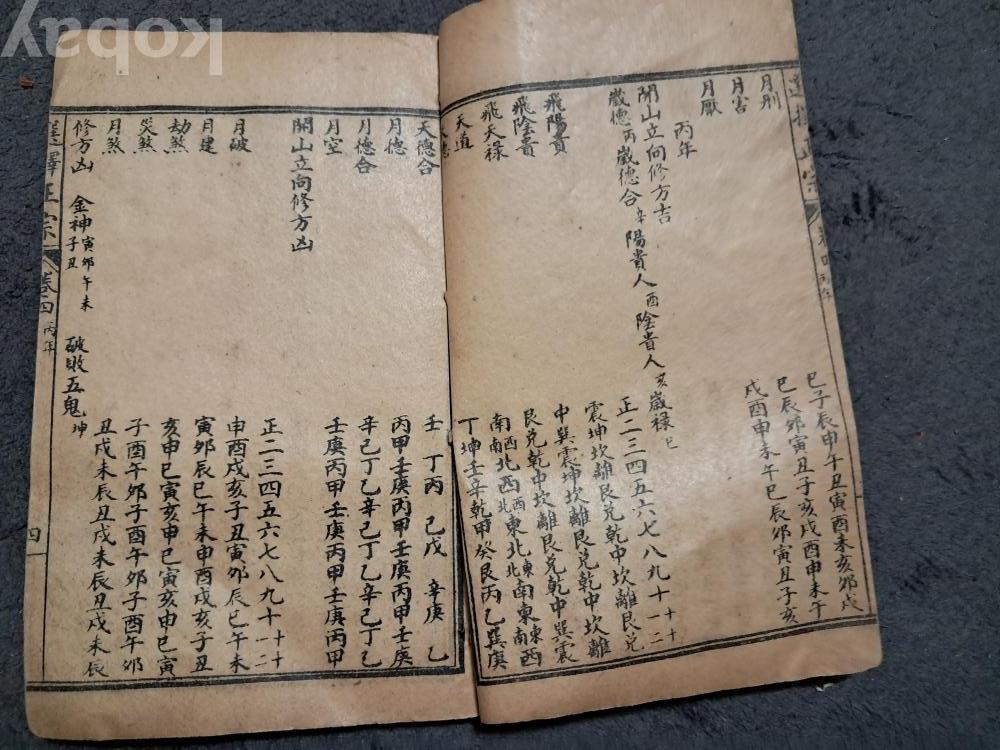 選擇正宗 卷四 丙年
月刑 巳子辰申午丑寅酉未亥卯戌
月害 巳辰卯寅丑子亥戌酉申未午
月厭 戌酉申未午巳辰卯寅丑子亥
丙年
開山立向修方吉
歲德丙歲德合辛陽貴人酉陰貴人亥歲祿巳
正二三四五六七八九十十一十二
飛陽貴 震坤坎離艮兌乾中坎離艮兌
飛陰貴 中巽震坤坎離艮兌乾中坎離
飛天祿 艮兌乾中坎離艮兌乾中巽震
天道 南西南北西西北東北東北南東東南西
天德 丁坤壬辛乾甲癸艮丙乙巽庚
天德合 壬 丁丙 己戊 辛庚 乙
月德 丙甲壬庚丙甲壬庚丙甲壬庚
月德合 辛己丁乙辛己丁乙辛己丁乙
月空 壬庚丙甲壬庚丙甲壬庚丙甲
開山立向修方凶
正二三四五六七八九十十一十二
月破 申酉戌亥子丑寅卯辰巳午未
月建 寅卯辰巳午未申酉戌亥子丑
劫煞 亥申巳寅亥申巳寅亥申巳寅
災煞 子酉午卯子酉午卯子酉午卯
月煞 丑戌未辰丑戌未辰丑戌未辰
修方凶 金神寅卯午未子丑 破敗五鬼坤
選擇正宗 卷四 丙年 四
kobay